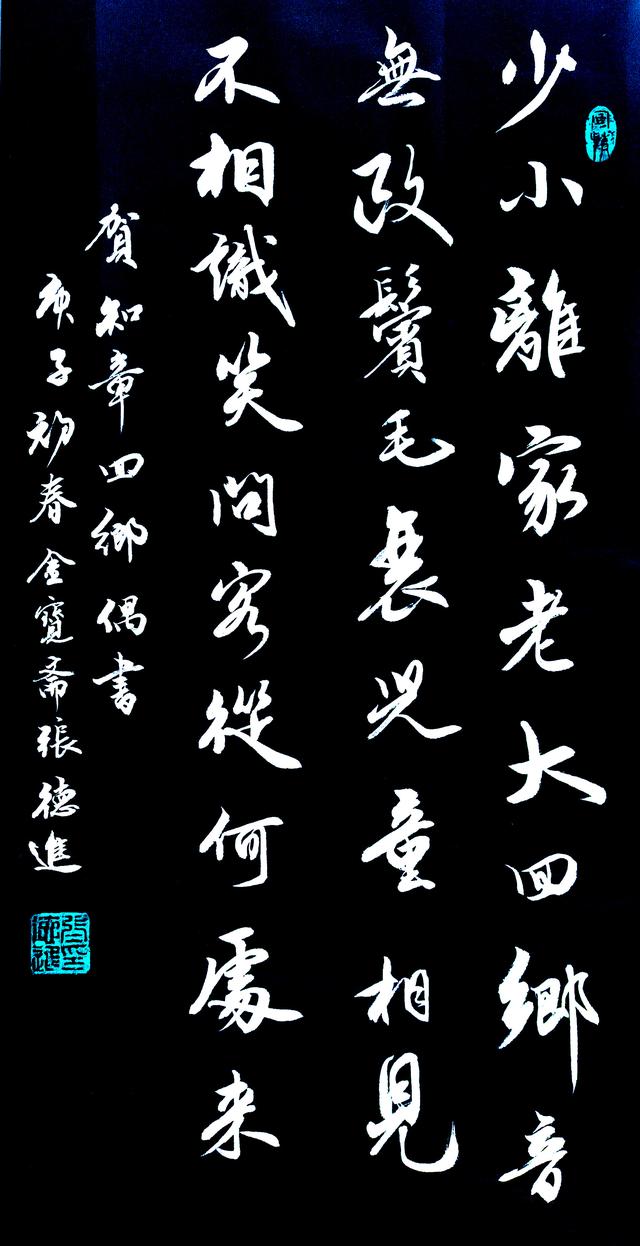 少小離家老大回鄉音
無改鬢毛衰兒童相見
不相識笑問客從何處来
賀知章回鄉偶書
庚子初春金寶斋張德進